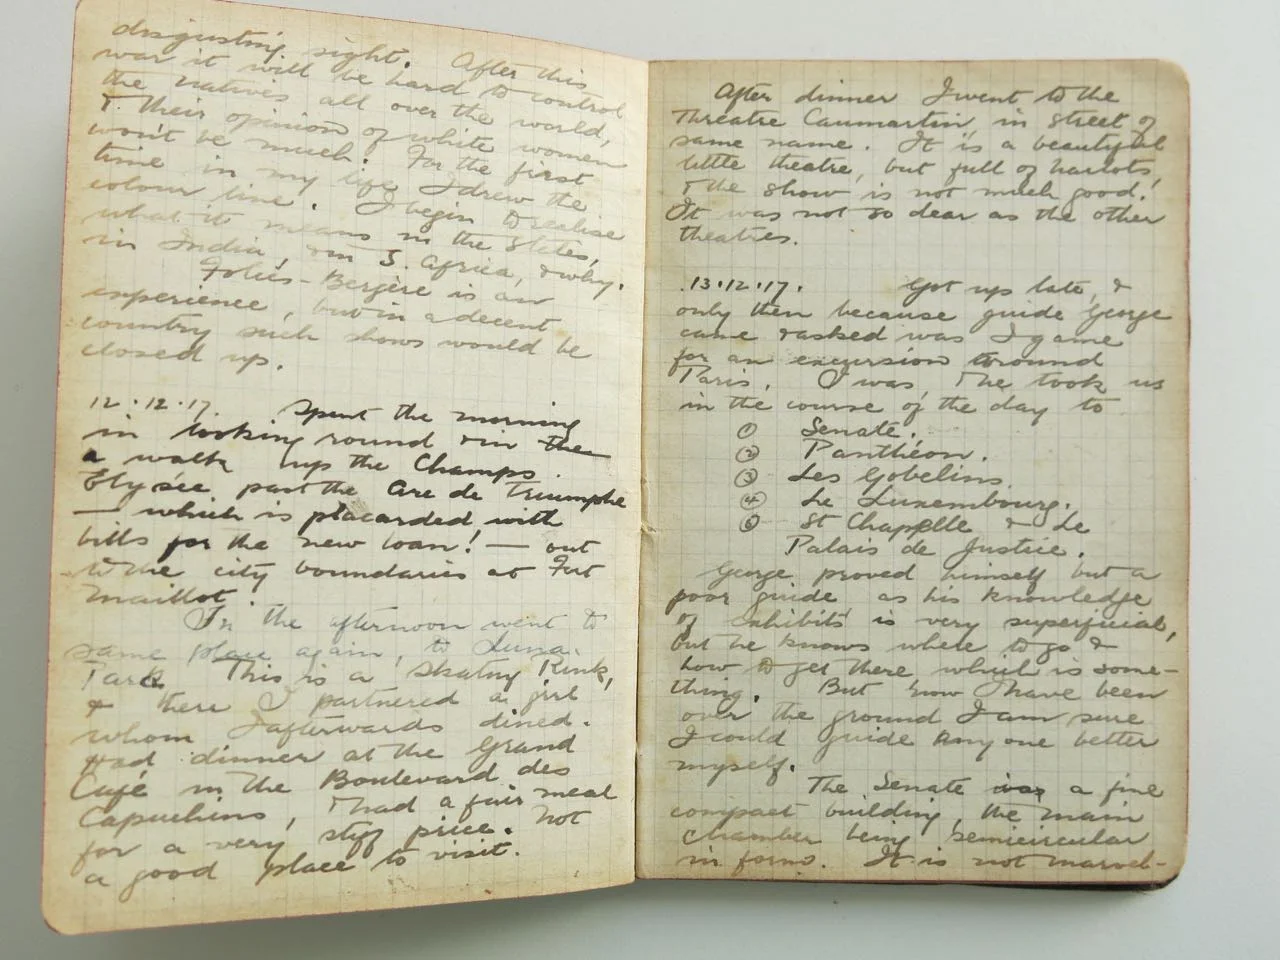 disgusting sight. After this
war it will be hard to control
the natives all over the world,
& their opinion of white women
won't be much. For the first
time in my life I drew the
colour line. I begin to realise
what it means in the States,
in India, & in S. Africa, & why.
Folies-Bergère is an
experience, but in a decent
country such shows would be
closed up.
12.12.17. Spent the morning
in looking round & in the
a walk up the Champs
Elysée past the Arc de Triumphe
— which is placarded with
bills for the new loan! — out
to the city boundaries at Fort
Maillot.
In the afternoon went to
same place again, to Luna-
Park. This is a Skating Rink,
& there I partnered a girl
whom I afterwards dined.
Had dinner at the Grand
Café in the Boulevard des
Capuchins, & had a fair meal
for a very stiff price. Not
a good place to visit.
After dinner I went to the
Theatre Caumartin, in street of
same name. It is a beautiful
little theatre, but full of harlots,
& the show is not much good.
It was not so dear as the other
theatres.
13.12.17. Got up late, &
only then because guide George
came & asked was I game
for an excursion around
Paris. I was, & he took us
in the course of the day to
① Senate.
② Panthéon.
③ Les Gobelins
④ Le Luxembourg.
⑤ St Chapelle & Le
Palais de Justice.
George proved himself but a
poor guide as his knowledge
of exhibits is very superficial,
but he knows where to go &
how to get there which is some-
thing. But now I have been
over the ground I am sure
I could guide anyone better
myself.
The Senate was a fine
compact building, the main
chamber being semicircular
in form. It is not marvel-